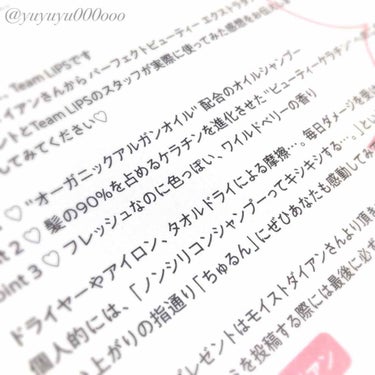 @yuyuyu000ooo
Team LIPSです
ダイアンさんから パーフェクトビューティー エクストラ
ントとTeam LIPSのスタッフが実際に使ってみた感想をお伝え
してみてください♡
1 ♡ "オーガニックアルガンオイル" 配合のオイルシャンプー
nt 2 ♡ 髪の90%を占めるケラチンを進化させた"ビューティーケラチン"
oint 3 ♡ フレッシュなのに色っぽい、ワイルドベリーの香り
ドライヤーやアイロン、タオルドライによる摩擦…。毎日ダメージを受け
個人的には、「ノンシリコンシャンプーってキシキシする…。」とい
上がりの指通り「ちゅるん」にぜひあなたも感動してみ
レゼントはモイストダイアンさんより頂き
を投稿する際には最後に必ず
アン